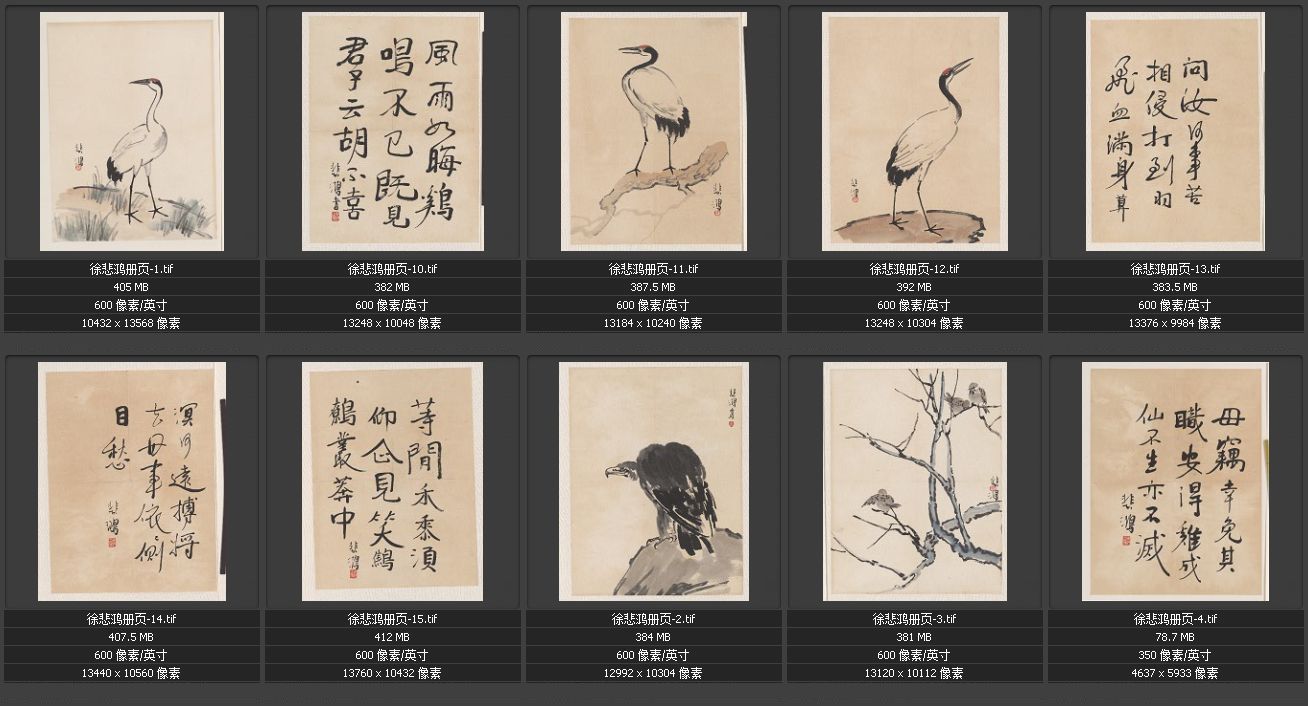 悲鴻
風雨如晦鷄
鳴不已既見
君子云胡不喜
悲鴻書
悲鴻
悲鴻
问汝何事苦
相侵打到羽
飛血滿身算
徐悲鸿册页-1.tif
405 MB
600 像素/英寸
10432 x 13568 像素
徐悲鸿册页-10.tif
382 MB
600 像素/英寸
13248 x 10048 像素
徐悲鸿册页-11.tif
387.5 MB
600 像素/英寸
13184 x 10240 像素
徐悲鸿册页-12.tif
392 MB
600 像素/英寸
13248 x 10304 像素
徐悲鸿册页-13.tif
383.5 MB
600 像素/英寸
13376 x 9984 像素
溟何遠搏將
去毋事依側
目愁
悲鴻
等閒禾黍須
仰企見笑鷦
鷯叢莽中
悲鴻
悲鴻寫
悲鴻
毋竊幸免其
職安得雞成
仙不生亦不滅
悲鴻
徐悲鸿册页-14.tif
407.5 MB
600 像素/英寸
13440 x 10560 像素
徐悲鸿册页-15.tif
412 MB
600 像素/英寸
13760 x 10432 像素
徐悲鸿册页-2.tif
384 MB
600 像素/英寸
12992 x 10304 像素
徐悲鸿册页-3.tif
381 MB
600 像素/英寸
13120 x 10112 像素
徐悲鸿册页-4.tif
78.7 MB
350 像素/英寸
4637 x 5933 像素